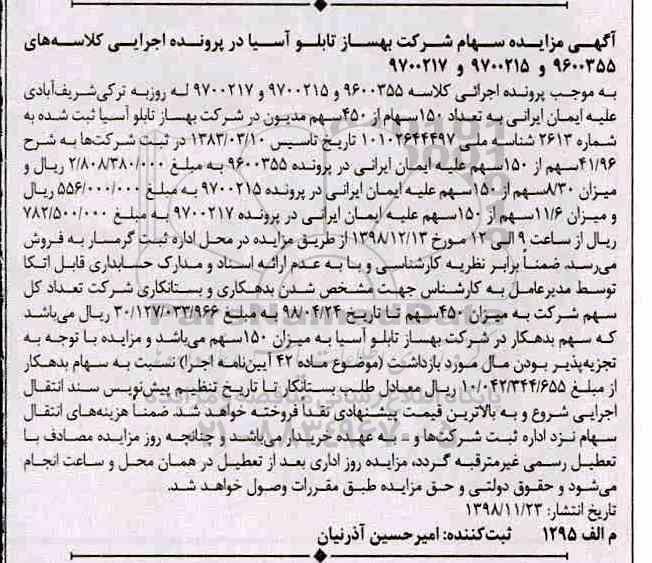 آگهی مزایده سهام شرکت بهساز تابلو آسیا در پرونده اجرایی کلاسه‌های
۹۶۰۰۳۵۵ و ۹۷۰۰۲۱۵ و ۹۷۰۰۲۱۷
به موجب پرونده اجرائی کلاسه ۹۶۰۰۳۵۵ و ۹۷۰۰۲۱۵ و ۹۷۰۰۲۱۷ له روزبه ترکی‌شریف‌آبادی
علیه ایمان ایرانی به تعداد ۱۵۰سهام از ۴۵۰سهم مدیون در شرکت بهساز تابلو آسیا ثبت شده به
شماره ۲۶۱۳ شناسه ملی ۱۰۱۰۲۶۴۴۴۹۷ تاریخ تاسیس ۱۳۸۳/۰۳/۱۰ در ثبت شرکت‌ها به شرح
۴۱/۹۶سهم از ۱۵۰سهم علیه ایمان ایرانی در پرونده ۹۶۰۰۳۵۵ به مبلغ ۲/۸۰۸/۳۸۰/۰۰۰ ریال و
میزان ۸/۳۰سهم از ۱۵۰سهم علیه ایمان ایرانی در پرونده ۹۷۰۰۲۱۵ به مبلغ ۵۵۶/۰۰۰/۰۰۰ ریال
و میزان ۱۱/۶سهم از ۱۵۰سهم علیه ایمان ایرانی در پرونده ۹۷۰۰۲۱۷ به مبلغ ۷۸۲/۵۰۰/۰۰۰
ریال از ساعت ۹ الی ۱۲ مورخ ۱۳۹۸/۱۲/۱۳ از طریق مزایده در محل اداره ثبت گرمسار به فروش
می‌رسد. ضمناً برابر نظریه کارشناسی و بنا به عدم ارائه اسناد و مدارک حسابداری قابل اتکا
توسط مدیرعامل به کارشناس جهت مشخص شدن بدهکاری و بستانکاری شرکت تعداد کل
سهم شرکت به میزان ۴۵۰سهم تا تاریخ ۹۸/۰۴/۲۴ به مبلغ ۳۰/۱۲۷/۰۳۳/۹۶۶ ریال می‌باشد
که سهم بدهکار در شرکت بهساز تابلو آسیا به میزان ۱۵۰سهم می‌باشد و مزایده با توجه به
تجزیه‌پذیر بودن مال مورد بازداشت (موضوع ماده ۴۲ آیین‌نامه اجرا) نسبت به سهام بدهکار
از مبلغ ۱۰/۰۴۲/۳۴۴/۶۵۵ ریال معادل طلب بستانکار تا تاریخ تنظیم پیش‌نویس سند انتقال
اجرایی شروع و به بالاترین قیمت پیشنهادی نقداً فروخته خواهد شد. ضمناً هزینه‌های انتقال
سهام نزد اداره ثبت شرکت‌ها و = به عهده خریدار می‌باشد و چنانچه روز مزایده مصادف با
تعطیل رسمی غیرمترقبه گردد، مزایده روز اداری بعد از تعطیل در همان محل و ساعت انجام
می‌شود و حقوق دولتی و حق مزایده طبق مقررات وصول خواهد شد.
تاریخ انتشار: ۱۳۹۸/۱۱/۲۳
م الف ۱۲۹۵ ثبت‌کننده: امیرحسین آذرنیان